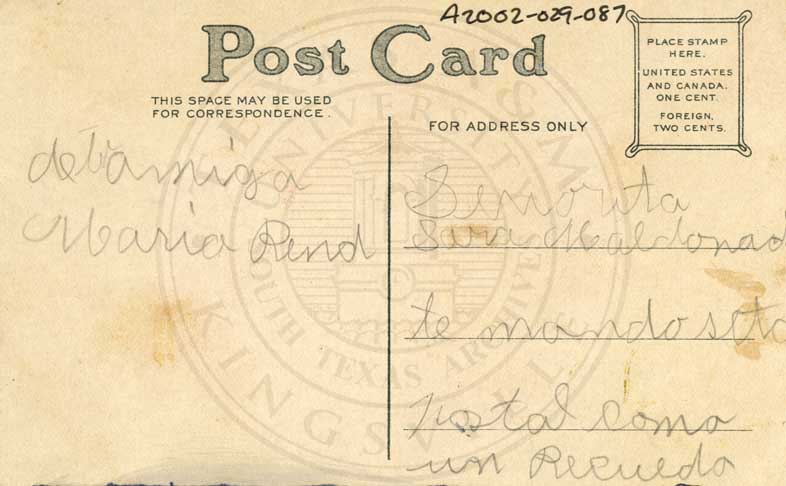 A2002-029-087
Post Card
PLACE STAMP
HERE.
UNITED STATES
AND CANADA.
ONE CENT.
FOREIGN,
TWO CENTS.
THIS SPACE MAY BE USED
FOR CORRESPONDENCE.
FOR ADDRESS ONLY
de tu amiga
Maria Rend
Senorita
Sara Maldonad
te mando seta
postal como
un Recuedo
UNIVERSITY
SOUTH TEXAS ARCHIVES
KINGSVILL